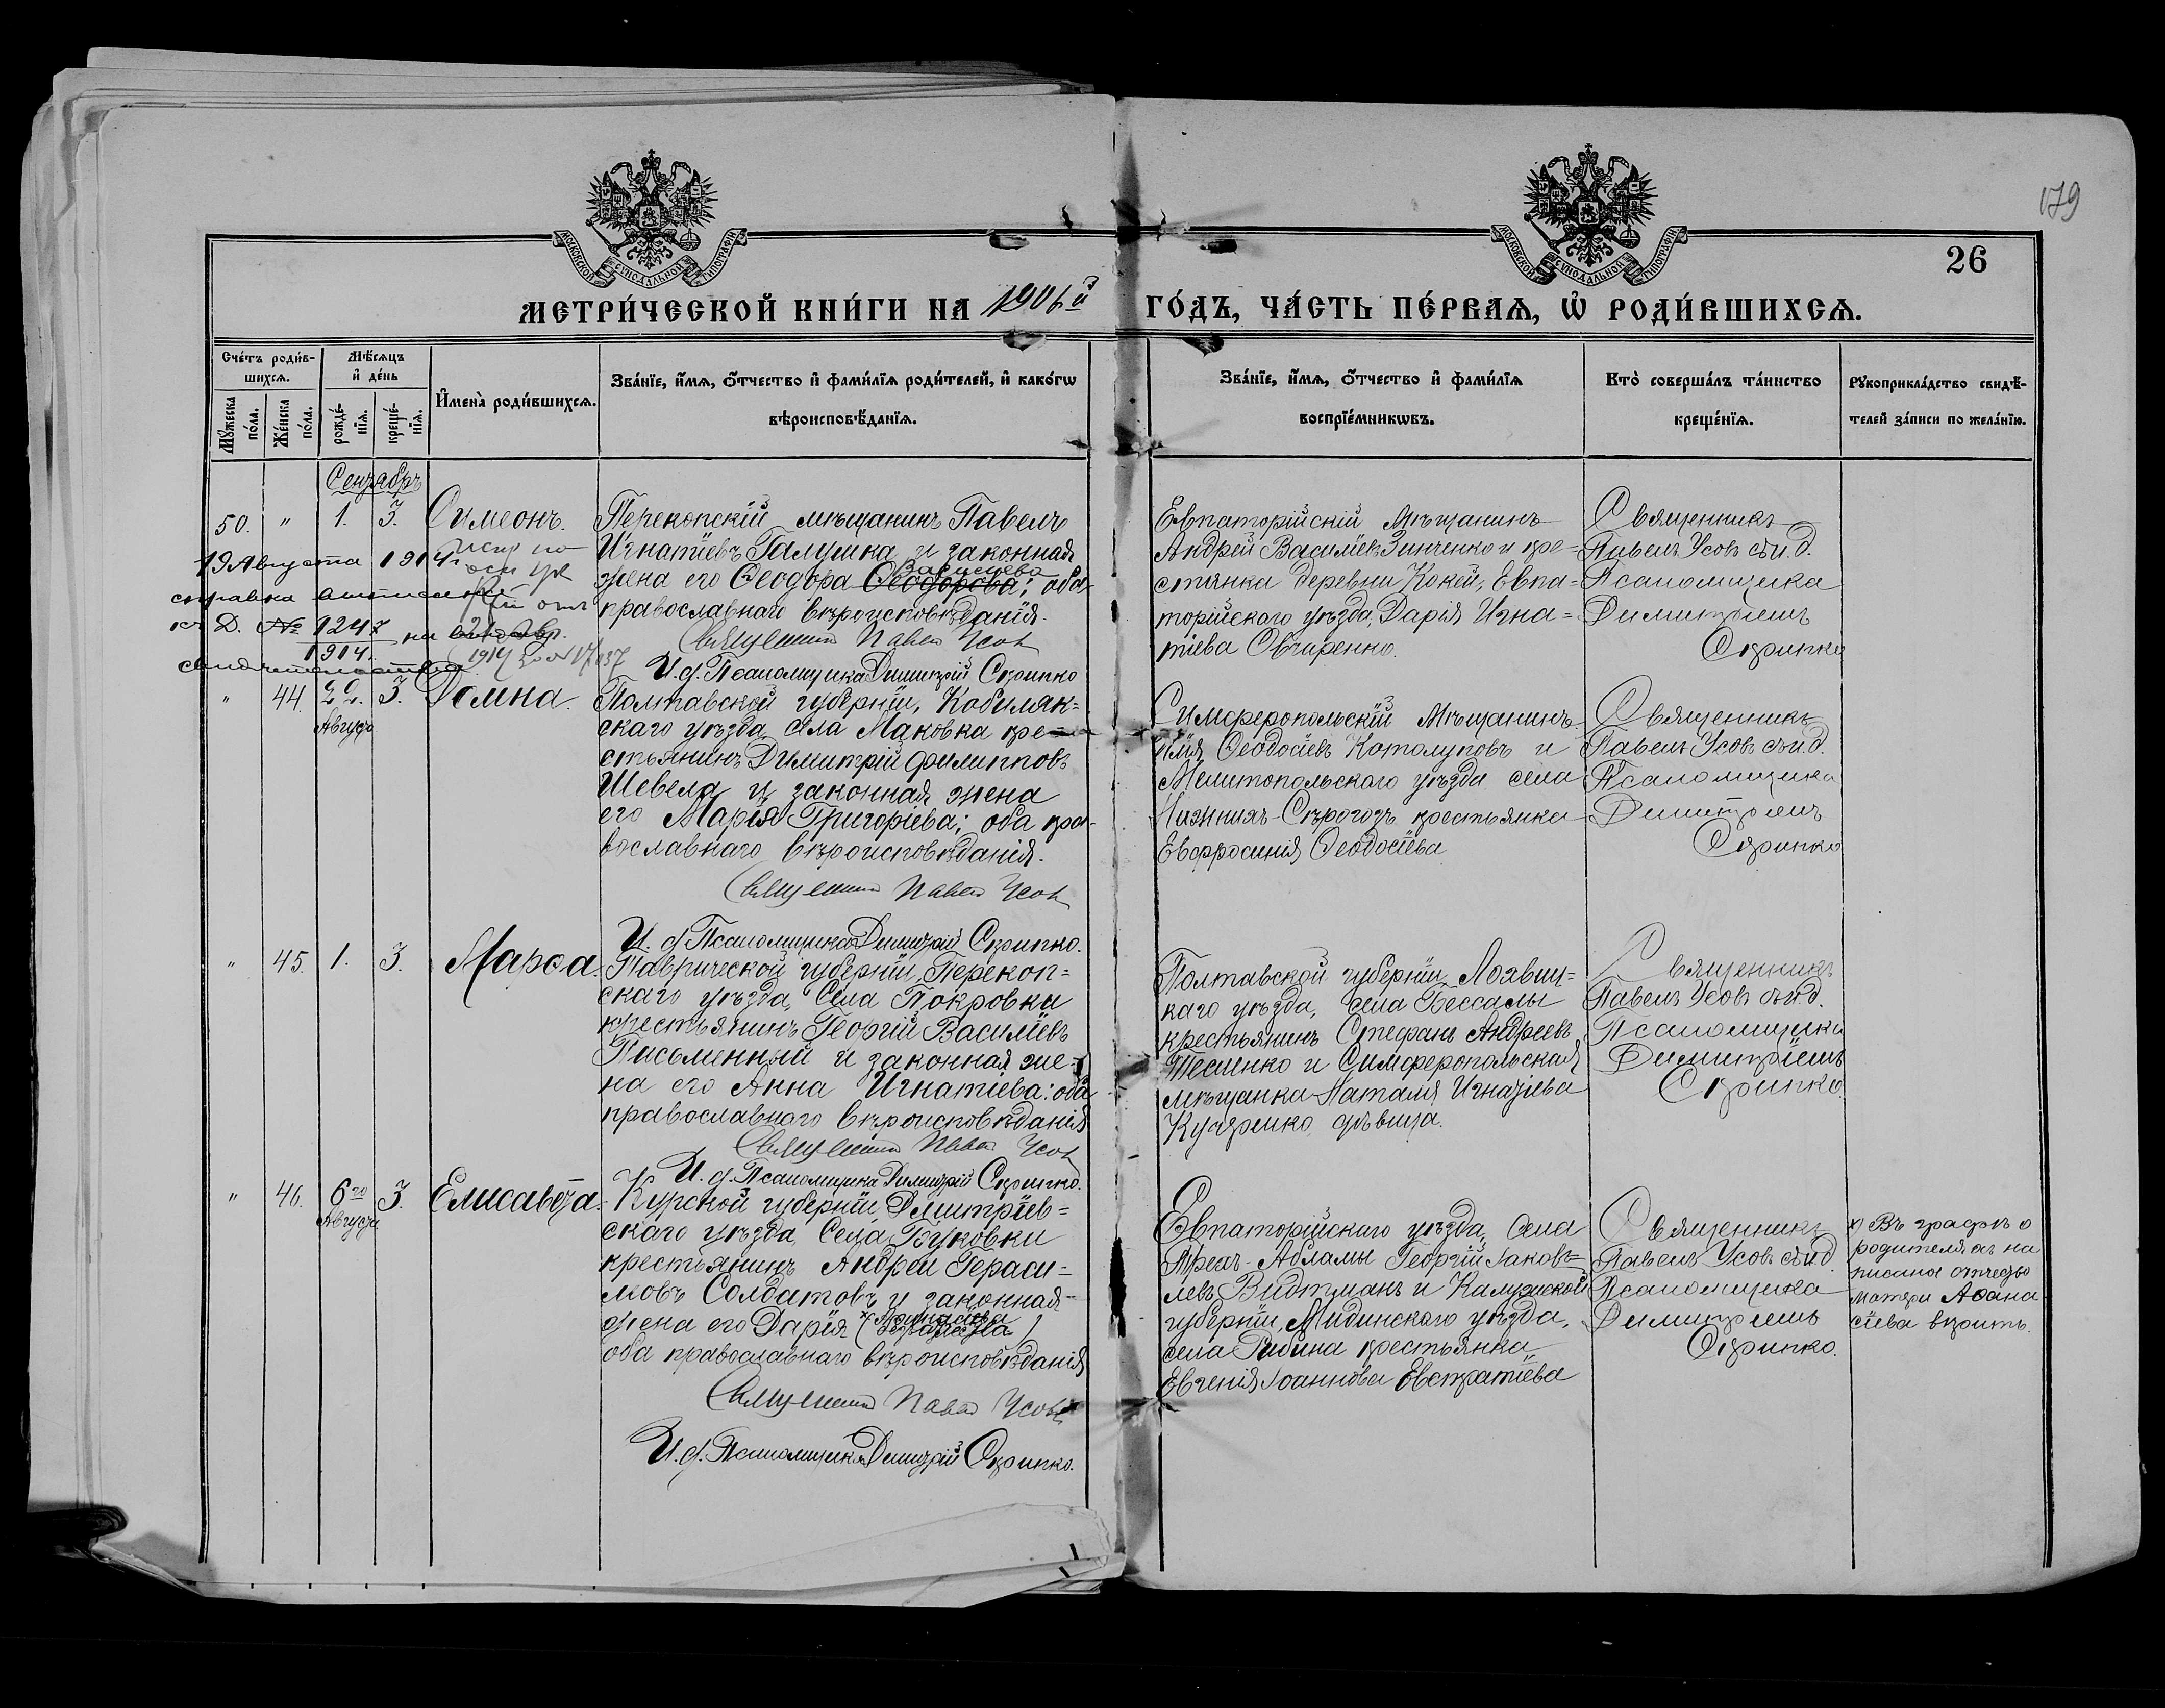 179
26
МОСКОВСКОЙ СѴНОДАЛЬНОЙ ТИПОГРАФІИ
МОСКОВСКОЙ СѴНОДАЛЬНОЙ ТИПОГРАФІИ
МЕТРИ́ЧЕСКОЙ КНИ́ГИ НА 1906й ГО́ДЪ, ЧА́СТЬ ПЕ́РВАѦ, Ѡ҆ РОДИ́ВШИХСѦ.
Сче́тъ роди́в-
шихсѧ.
Мѣ́сѧцъ
и҆ де́нь
Мꙋ́жеска по́ла.
Же́нска по́ла.
рожде́-
нїѧ.
креще́-
нїѧ.
И҆мена̀ роди́вшихсѧ.
Зва́нїе, и҆́мѧ, ѻ҆́тчество и҆ фами́лїѧ роди́телей, и҆ како́гѡ
вѣроисповѣ́данїѧ.
Зва́нїе, и҆́мѧ, ѻ҆́тчество и҆ фами́лїѧ
воспрїе́мникѡвъ.
Кто̀ соверша́лъ та́инство
креще́нїѧ.
Рꙋкоприкла́дство свидѣ́-
телей за́писи по жела́нїю.
Сентябрь
50. " 1. 3. Симеонъ.
Перекопскій мѣщанинъ Павелъ
Игнатіевъ Галушка и законная
жена его Ѳеодора Ѳеодорова; оба
Василиева
православнаго вѣроисповѣданія.
Священникъ Павелъ Усовъ
И.д. Псаломщика Димитрій Скрипко
Евпаторійскій Мѣщанинъ
Андрей Василіевъ Зинченко и кре-
стянка деревни Кокей, Евпа-
торійскаго уѣзда, Дарія Игна-
тіева Овчаренко.
Священникъ
Павелъ Усовъ съ и.д.
Псаломщика
Димитріемъ
Скрипко
19 Августа 1914 г.
справка
къ Д. № 1247
1914.
на
" 44. 22. 3. Домна.
Августъ
Полтавской губерніи, Кобиляк-
скаго уѣзда села Маковка кре-
стьянинъ Димитрій Филипповъ
Шевела и законная жена
его Марія Григоріева; оба пра-
вославнаго вѣроисповѣданія.
Священникъ Павелъ Усовъ
И.д. Псаломщика Димитрій Скрипко.
Симферопольскій Мѣщанинъ
Илія Ѳеодосіевъ Котолуповъ и
Мелитопольскаго уѣзда села
Нижнихъ-Сѣрогозъ крестьянка
Евфросинія Ѳеодосіева
Священникъ
Павелъ Усовъ съ и.д.
Псаломщика
Димитріемъ
Скрипко
" 45. 1. 3. Марѳа.
Таврической губерніи, Перекоп-
скаго уѣзда, Села Покровки
крестьянинъ Георгій Василіевъ
Письменный и законная же-
на его Анна Игнатіева: оба
православного вѣроисповѣданія
Священникъ Павелъ Усовъ
И.д. Псаломщика Димитрій Скрипко.
Полтавской губерніи Лохвиц-
каго уѣзда, села Бессалы
крестьянинъ Стефанъ Андреевъ
Тесленко и Симферопольская
мѣщанка Наталія Игнатіева
дѣвица.
Священникъ
Павелъ Усовъ съ и.д.
Псаломщика
Димитріемъ
Скрипко.
" 46. 6го 3. Елисавета.
Августа
Курской губерніи Дмитріев-
скаго уѣзда Села Буковки
крестьянинъ Андрей Гераси-
мовъ Солдатовъ и законная
жена его Дарія
х) Аѳанасіева
оба православнаго вѣроисповѣданія
Священникъ Павелъ Усовъ
И.д. Псаломщика Димитрій Скрипко.
Евпаторійскаго уѣзда, Села
Трехъ-Абламы Георгій Іаковъ-
левъ Видтманъ и Калужской
губерніи, Мидинскаго уѣзда,
села Радина крестьянка
Евгенія Іоаннова Евстратіева
Священникъ
Павелъ Усовъ съ и.д.
Псаломщика
Димитріемъ
Скрипко.
х) Въ графѣ о
родителяхъ на
писанное отчество
матери Аѳана
сіева вѣрить.